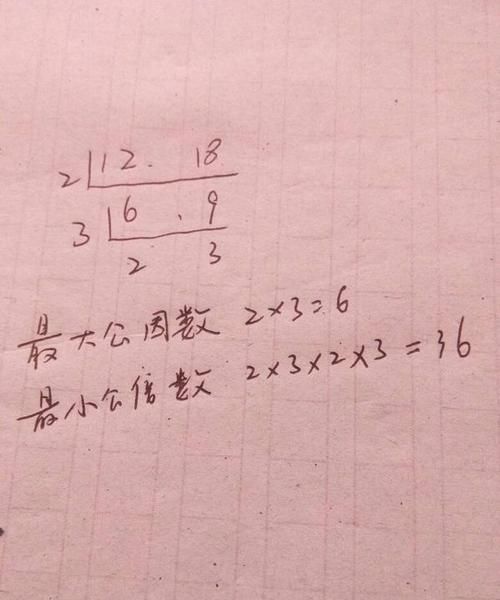 2 12. 18
3 6. 9
2 3
最大公因数 2×3=6
最小公倍数 2×3×2×3=36